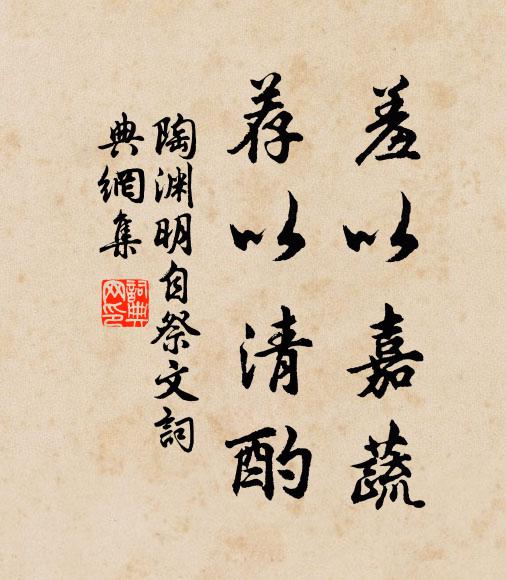 羞以嘉蔬
荐以清酌
陶渊明自祭文词
典網集
詞典
网印